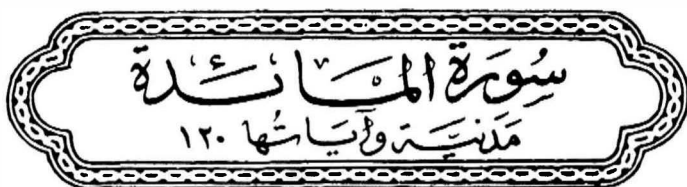 سُورَة المَائدة
مَدنيَّة وآيَاتُها ١٢٠